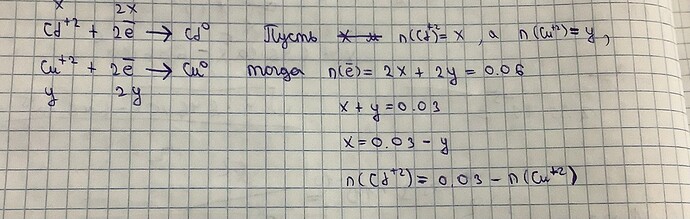 x 2x
Cd⁺² + 2ē → Cd⁰ Пусть n(Cd⁺²)=x, а n(Cu⁺²)=y,
Cu⁺² + 2ē → Cu⁰ тогда n(ē) = 2x + 2y = 0.06
y 2y x + y = 0.03
x = 0.03 - y
n(Cd⁺²) = 0.03 - n(Cu⁺²)